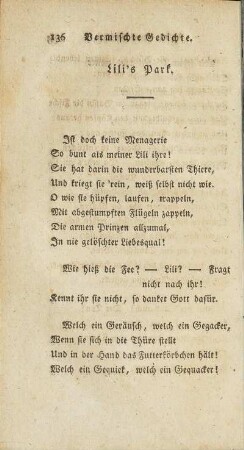 136 Vermischte Gedichte.
Lili's Park.
Ist doch keine Menagerie
So bunt als meiner Lili ihre!
Sie hat darin die wunderbarsten Thiere,
Und kriegt sie 'rein, weiß selbst nicht wie.
O wie sie hüpfen, laufen, trappeln,
Mit abgestumpften Flügeln zappeln,
Die armen Prinzen allzumal,
In nie gelöschter Liebesqual!
Wie hieß die Fee? — Lili? — Fragt
nicht nach ihr!
Kennt ihr sie nicht, so danket Gott dafür.
Welch ein Geräusch, welch ein Gegacker,
Wenn sie sich in die Thüre stellt
Und in der Hand das Futterkörbchen hält!
Welch ein Gequick, welch ein Gequacker!